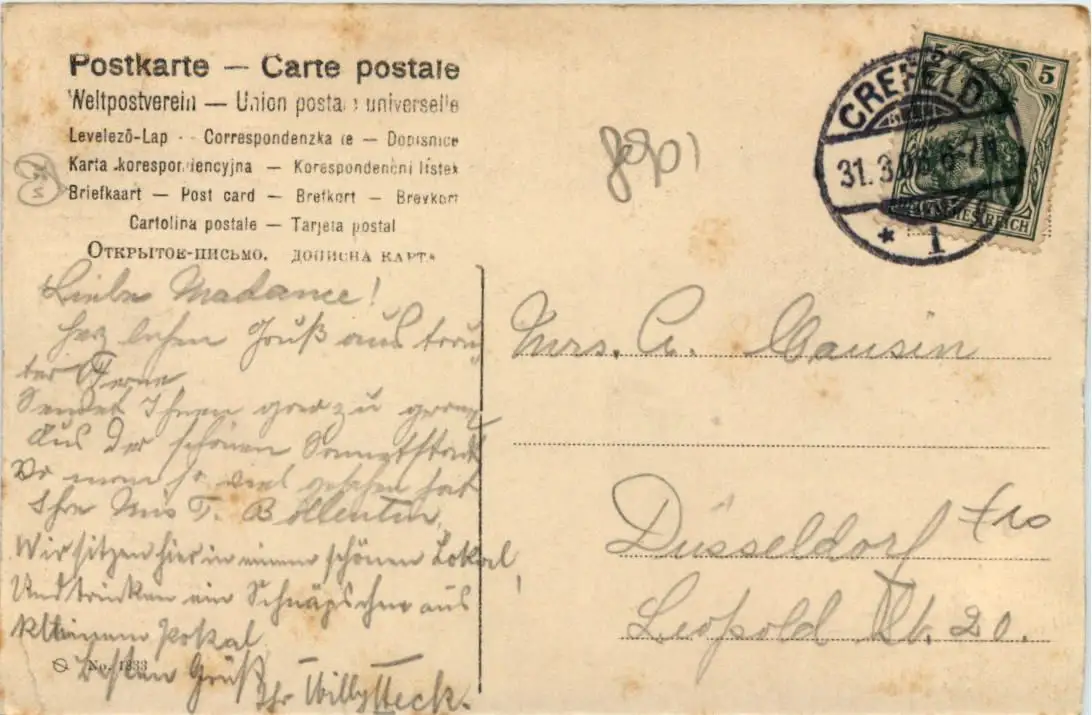 Postkarte — Carte postale
Weltpostverein — Union postale universelle
Levelező-Lap — Correspondenzkarte — Dopisnice
Karta korespondencyjna — Korespondenční lístek
Briefkaart — Post card — Brefkort — Brevkort
Cartolina postale — Tarjeta postal
Открытое-письмо. дописна карта
CREFELD
31.3.06 6-7 N
* 1
5
DEUTSCHES REICH
Liebe Madame!
Herzlichen Gruß aus trau
ter Ferne
Sendet Ihnen gern
Aus der schönen Sammetstadt
Wo man so viel gesehen hat
Ihre Miss T. Böllentin.
Wir sitzen hier in einem schönen Lokal,
Und trinken ein Schnäpschen aus
kleinem Pokal
Besten Gruß
Ihr Willy Heck.
No. 1333
Mrs. A. Causin
Düsseldorf
Leopold Str. 20.